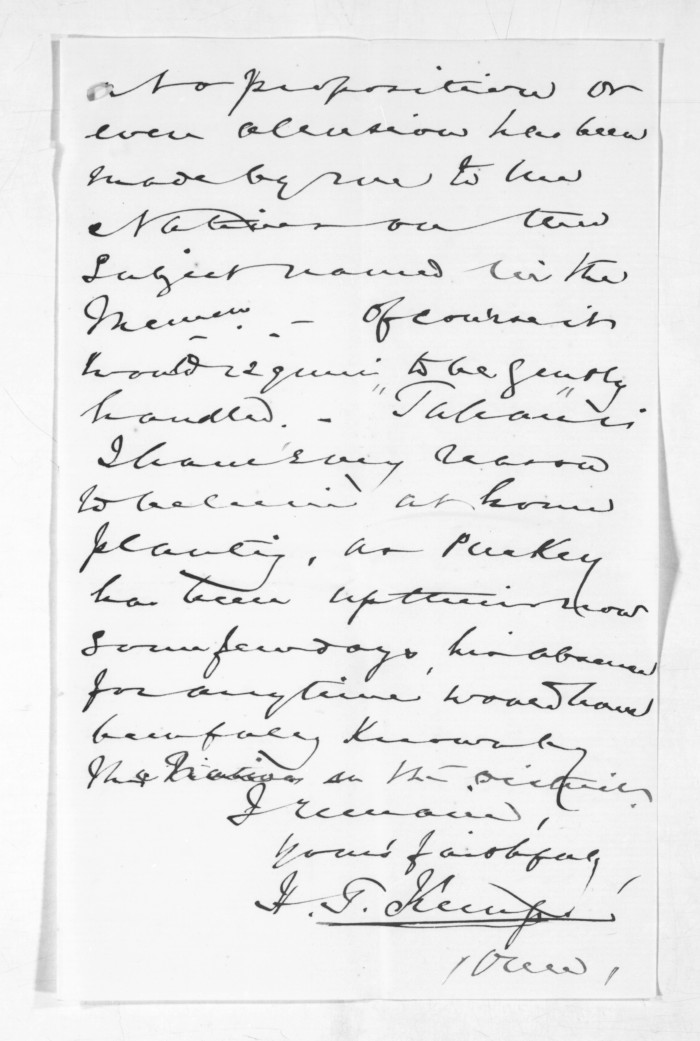 No proposition or
even allusion has been
made by me to the
Natives on the
subject named in the
Memo. - Of course it
would require to be gently
handled. - "Tahau" is
I have every reason
to believe at home
planting, as Puckey
has been up there now
some few days, his absence
for any time, would have
been fully known by
the Natives in the district.
I remain,
Yours faithfully,
H. T. Kemp
(Over)